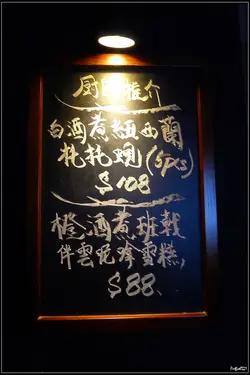 厨師推介
白酒煮紐西蘭
(5pcs)
$108
橙酒煮班戟
伴雲呢拿雪糕,
$88.